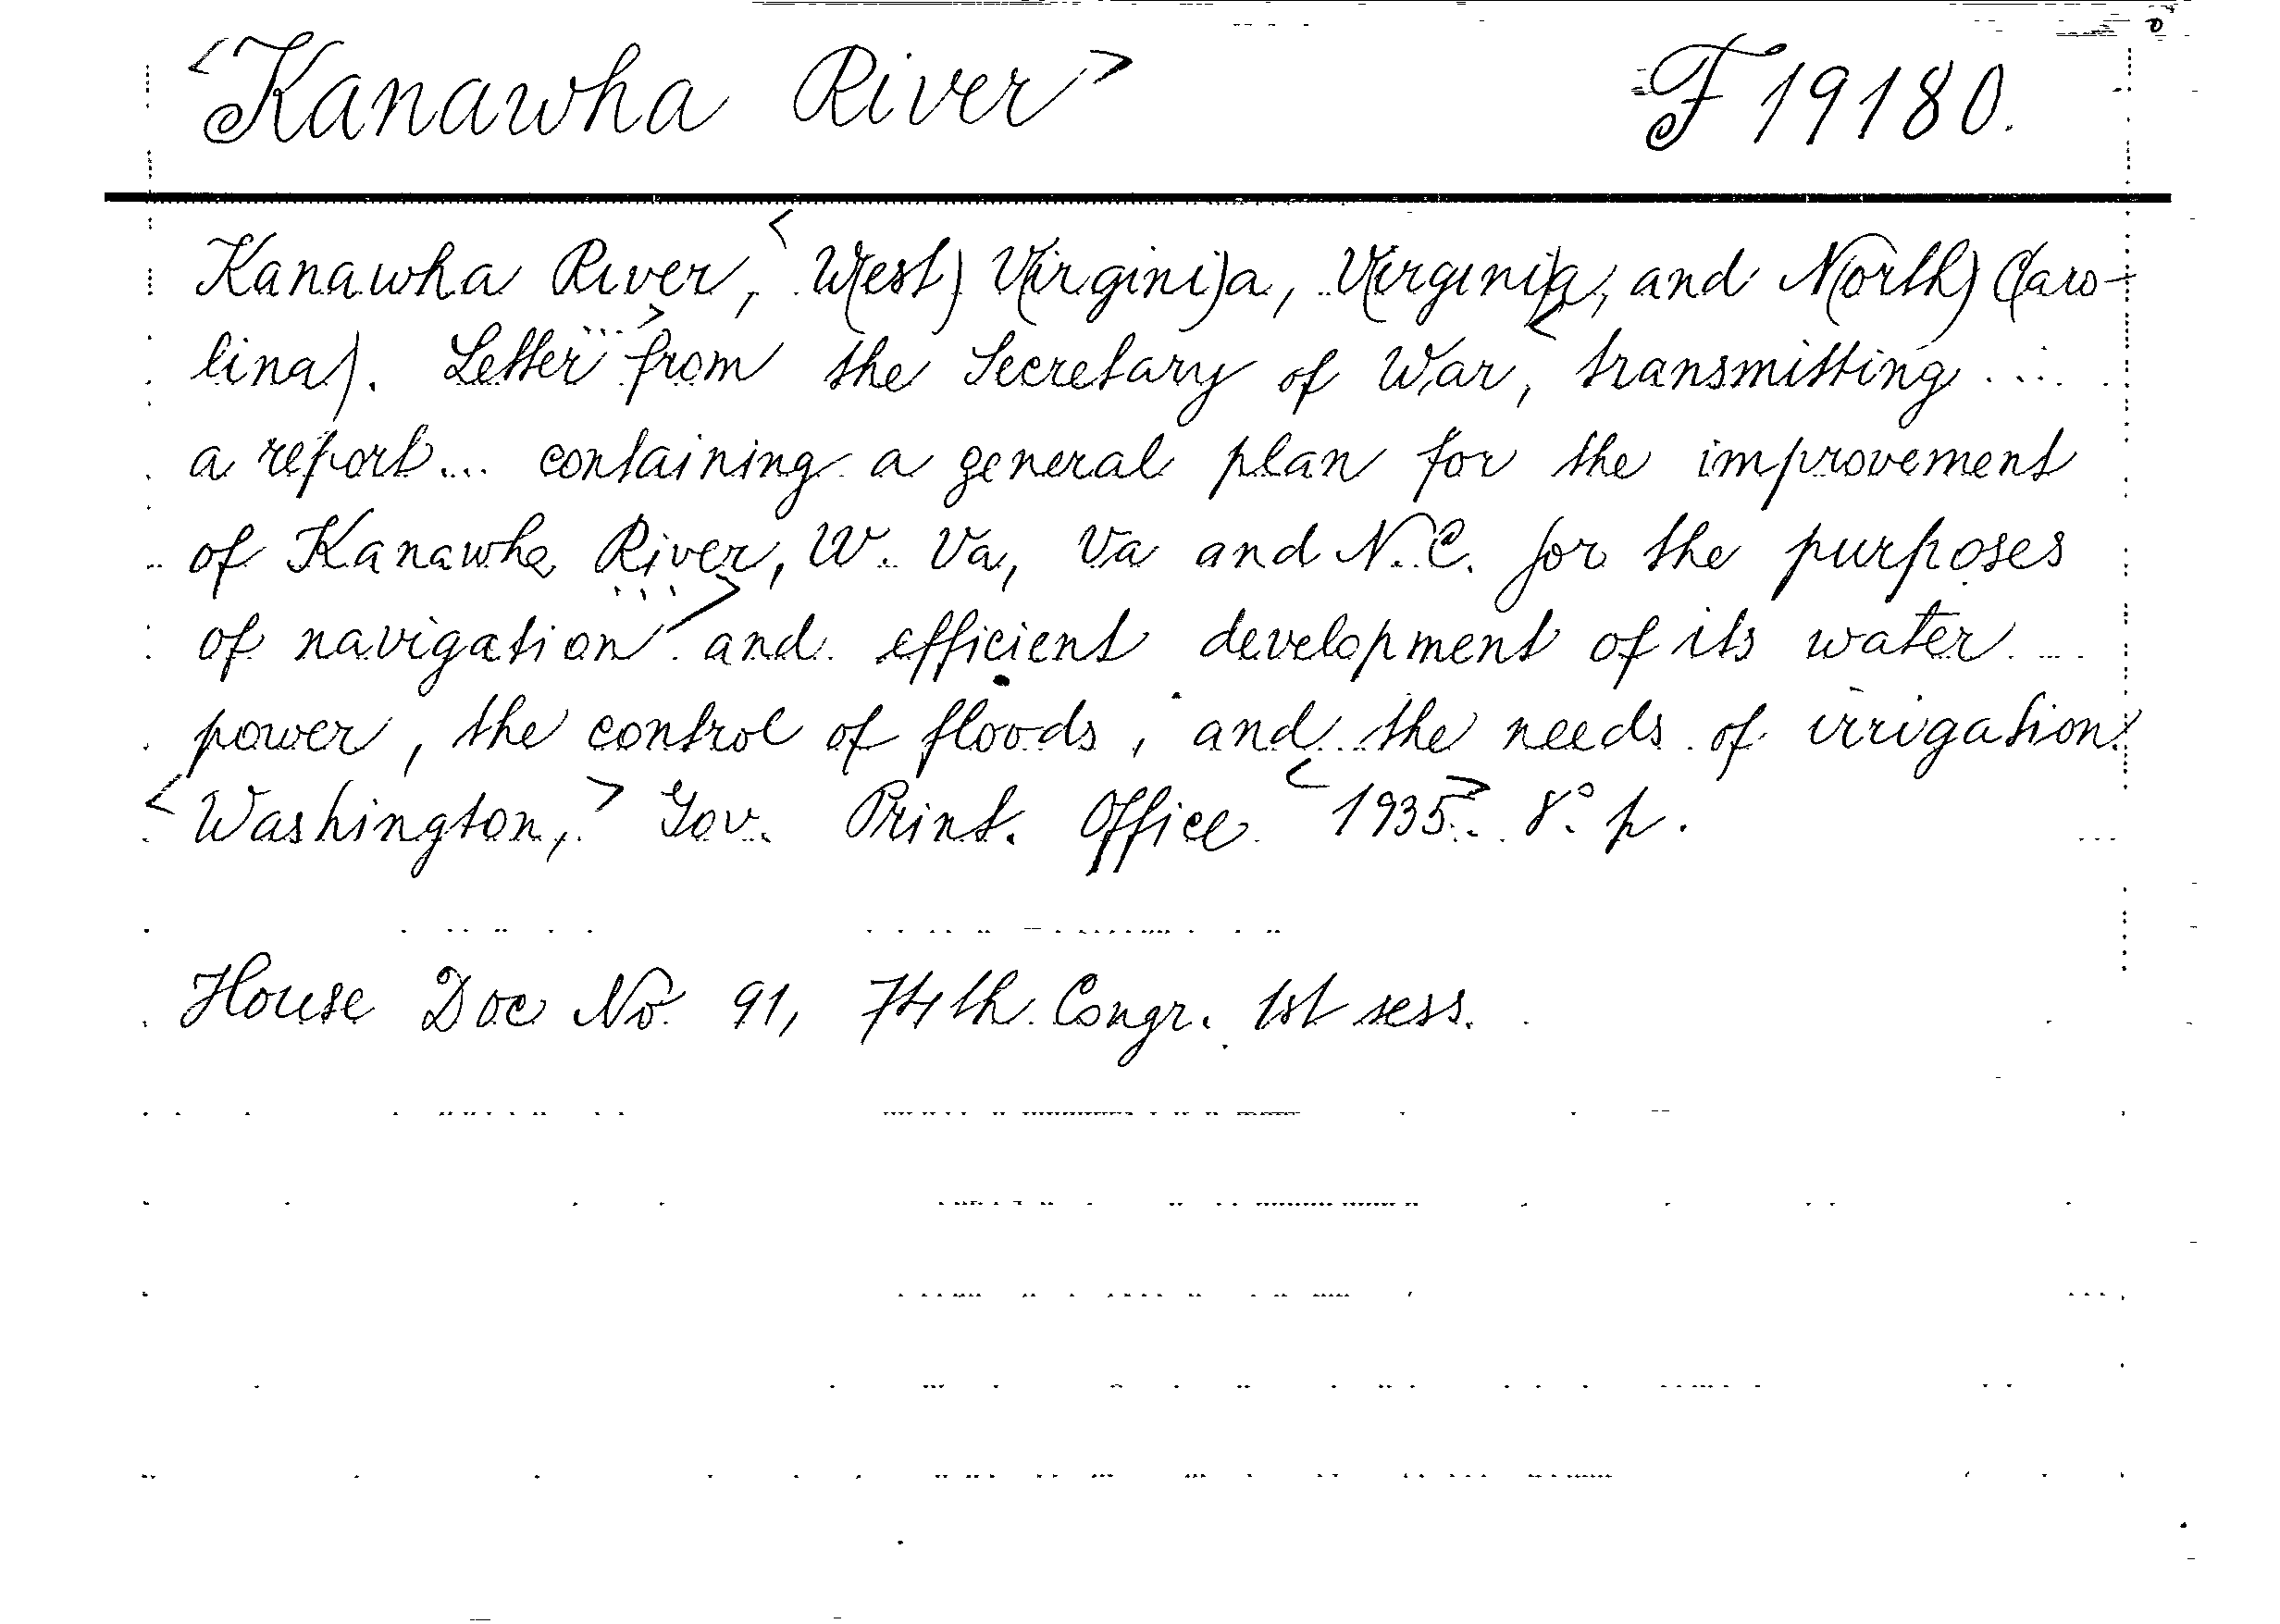 <Kanawha River> F 19180.
Kanawha River, <W(est) V(irgini)a, V(irgini)a, and N(orth) C(aro-
lina). Letter ...> from the Secretary of War, <transmitting ...
a report ... containing a general plan for the improvement
of Kanawha River, W. Va, Va and N.C. for the purposes
of navigation ...> and efficient development of its water
power, the control of floods, and the needs of irrigation.
<Washington,> Gov. Print. Office <1935>. 8° p.
House Doc No 91, 74th Congr. 1st sess.